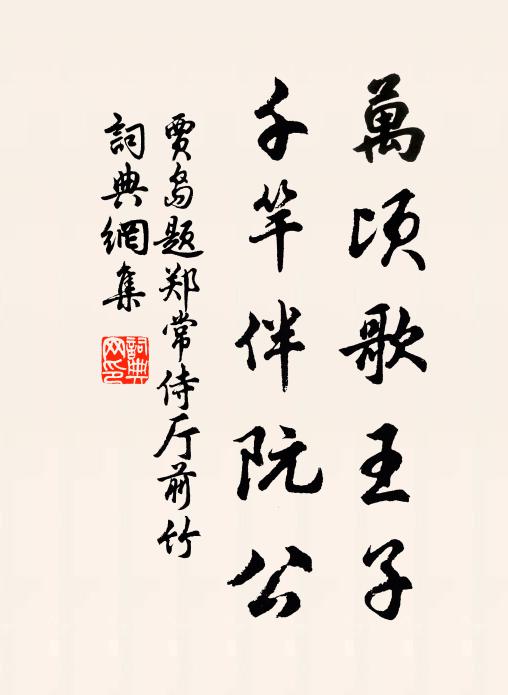 萬頃歌王子
千竿伴阮公
賈島题郑常侍厅前竹
詞典網集
詞典网印